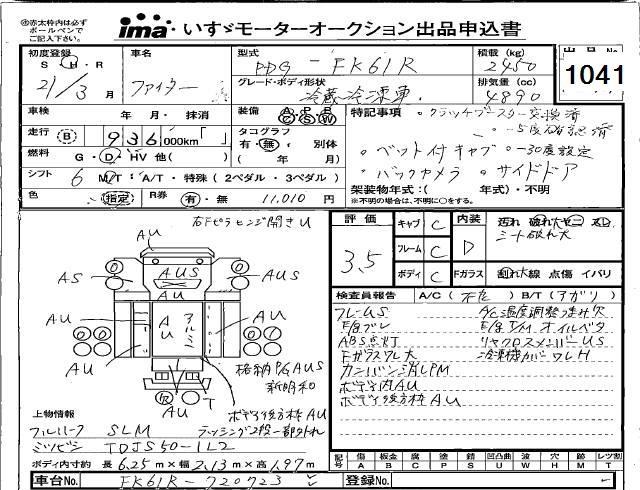 ㊟赤太枠内は必ず
ボールペンで
ご記入下さい。
ima・いすゞモーターオークション出品申込書
初度登録 S・H・R 21/3月
車名 ファイター
型式 PDG - FK61R
積載 (kg) 2450
出品No. 1041
グレード・ボディ形状 冷蔵冷凍車
排気量 (cc) 4890
車検 年・月・抹消
装備
特記事項 ・クラッチブースター交換済
・-5度確認済
走行 B 936,000km「 」
タコグラフ 有・無・別体
( 年 月)
・ベット付キャブ ・-30度設定
燃料 G・D・HV 他( )
・バックカメラ ・サイドドア
シフト 6 M/T:A/T・特殊(2ペダル・3ペダル)
架装物年式:( 年式)・不明
※不明の場合は、不明に○をする。
色 指定
R券 有・無 11,010円
右Fピラヒンジ開きU
評価 3.5
キャブ C
フレーム C
ボディ C
内装 D
シート破れ大
Fガラス 割れ大 線 点傷 イバリ
検査員報告 A/C (不良) B/T (アガリ)
フレーUS
E/gブレ
ABS点灯
Fガラスワレ大
カンバン消しPM
ボデー内AU
ボデー後方枠AU
A/C温度調整つまみ欠
E/g T/M オイルベタ
リヤクロスメンバーUS
冷凍機カバーワレH
AU
AS
AUS
AU
AUS
AU
AU
アルミ
AU
AU
AU
T
格納PG AUS
新明和
ボデー後方枠AU
ラッシング2段一部外れ
上物情報
フルハーフ SLM
ミツビシ TDJS50-1L2
ボディ内寸約 長 6.25 m×幅 2.13 m×高 1.97 m
記号 傷A 板金B 腐C 塗P 錆S 凹U 波W 穴H 跡M レツ割T
車台No. FK61R-720723
登録No.